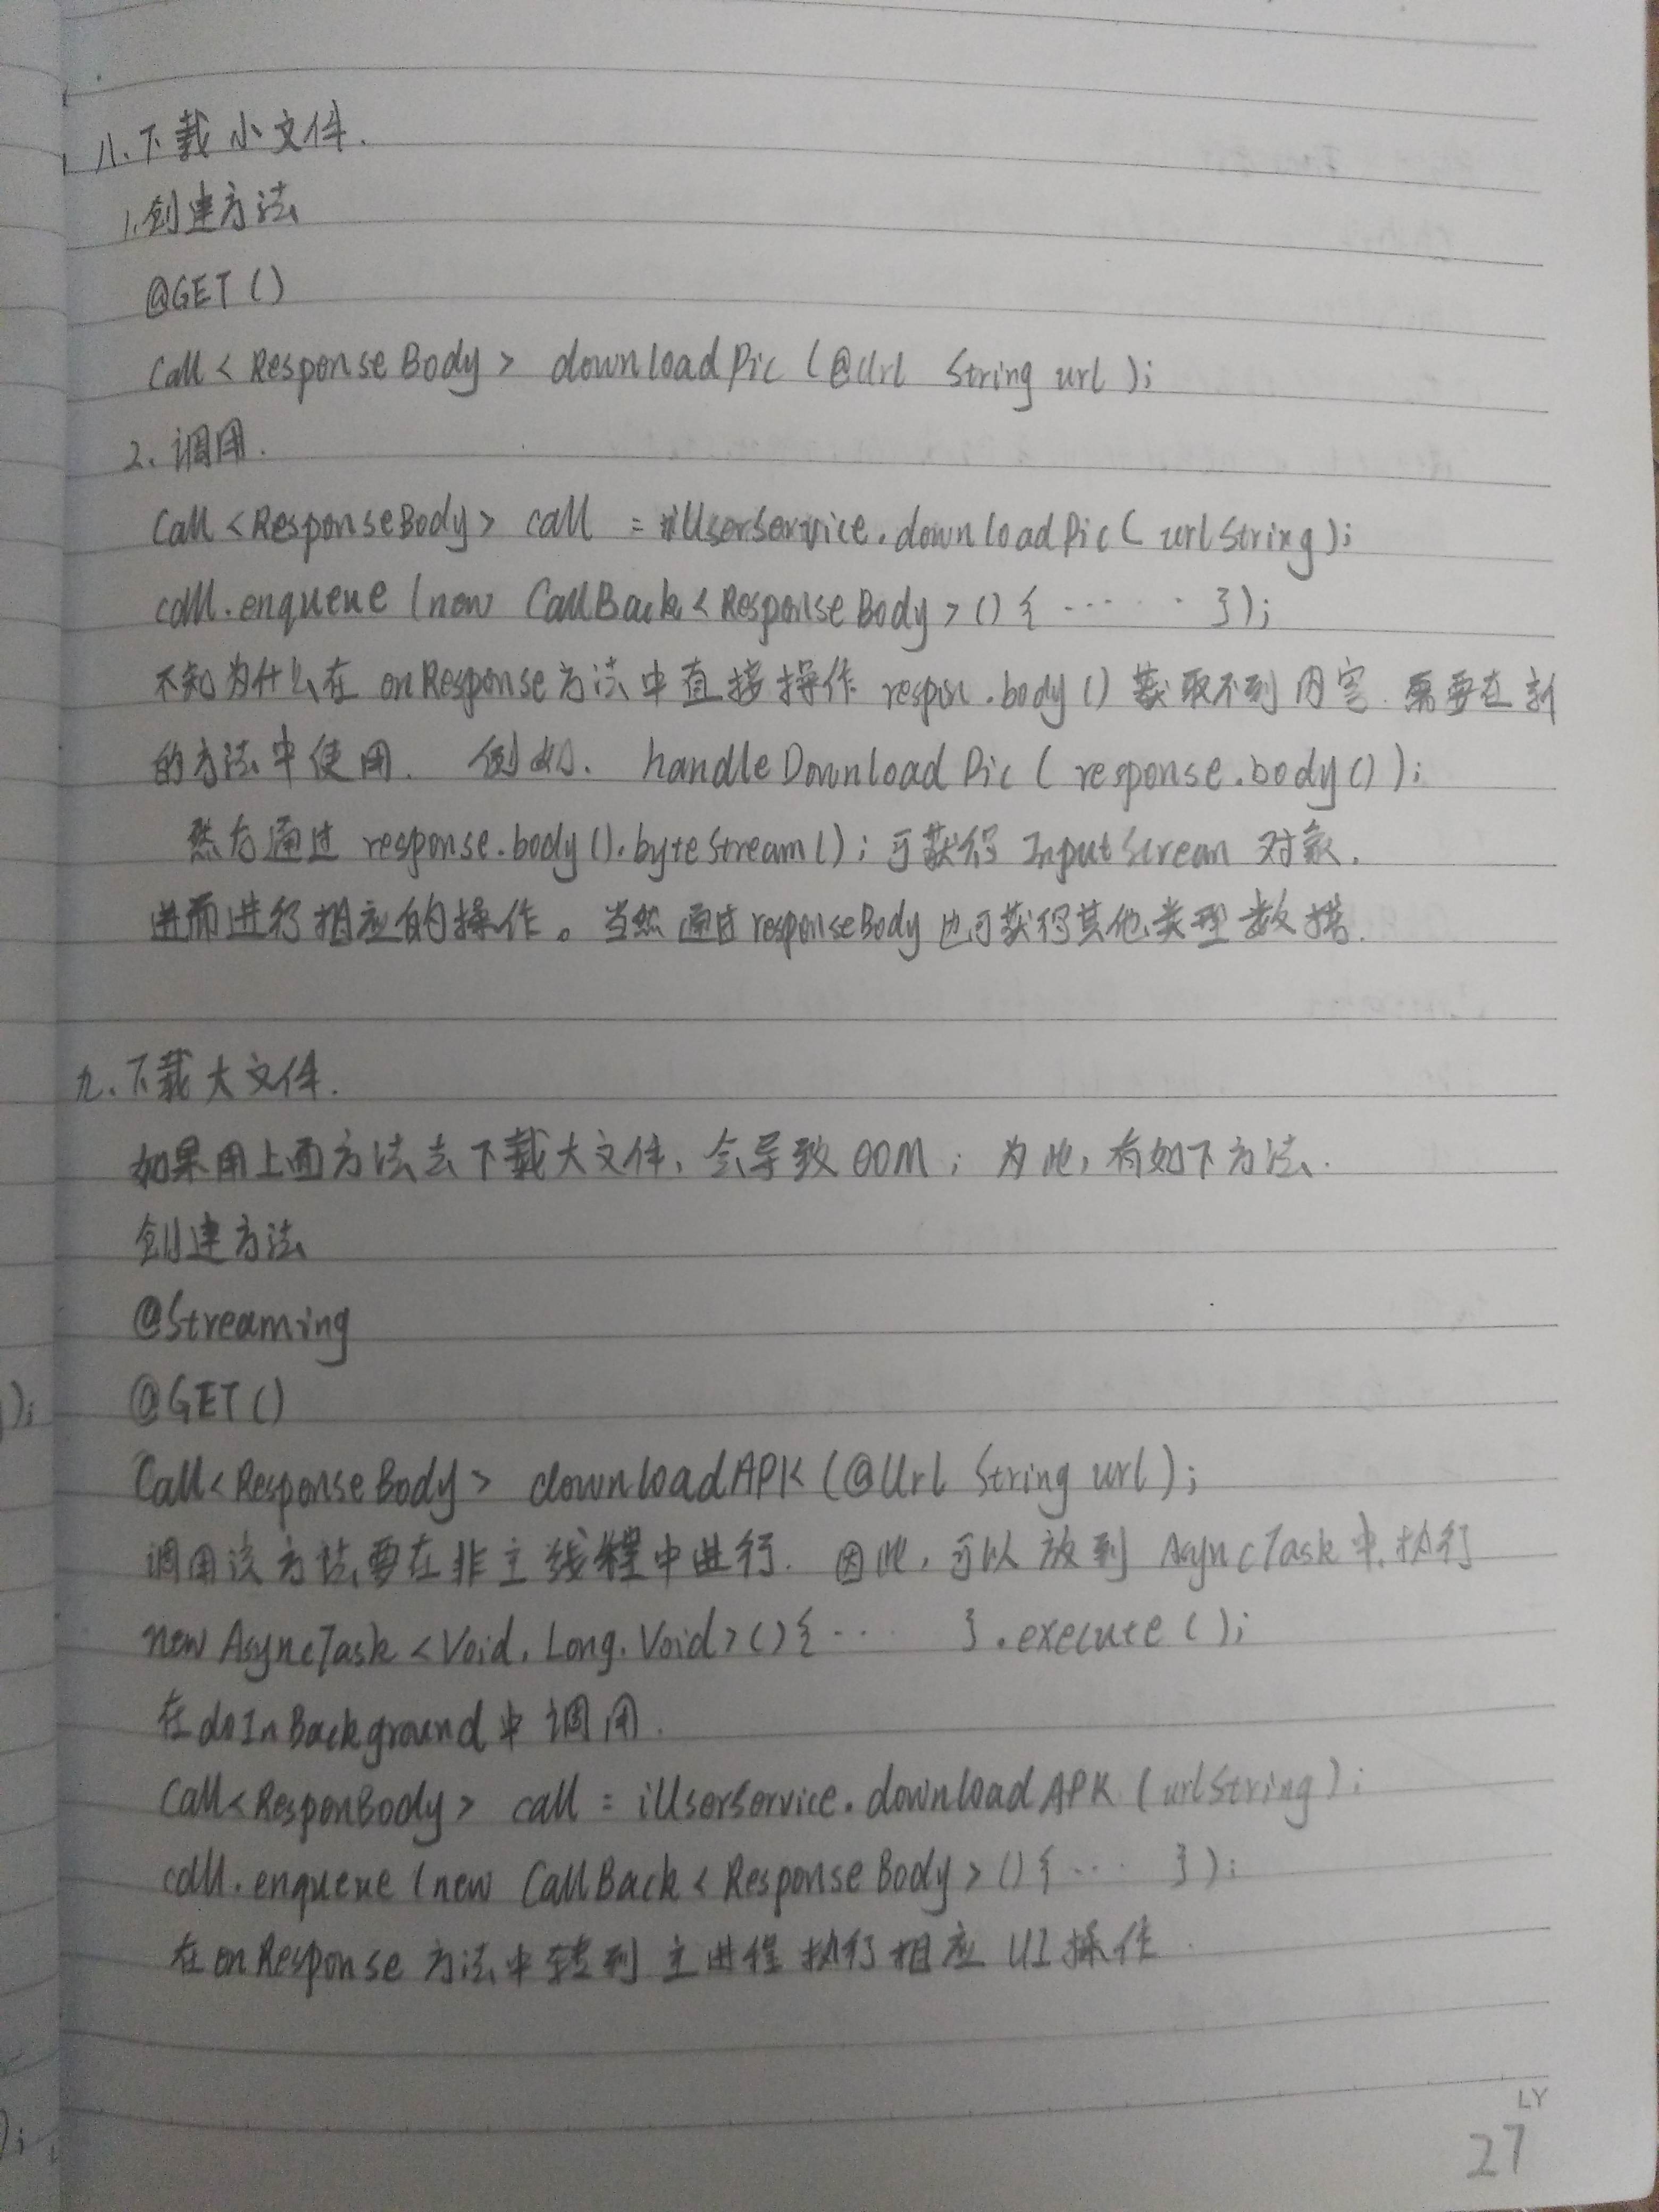 八、下载小文件.
1.创建方法
@GET()
Call<ResponseBody> downloadPic(@Url String url);
2、调用.
Call<ResponseBody> call = iUserService.downloadPic(urlString);
call.enqueue(new CallBack<ResponseBody>(){ ······ });
不知为什么在 onResponse方法中直接操作 respon.body() 获取不到内容.需要在新
的方法中使用. 例如. handleDownloadPic(response.body());
然后通过 response.body().byteStream(); 可获得 InputStream 对象.
进而进行相应的操作。当然通过responseBody也可获得其他类型数据.
九、下载大文件.
如果用上面方法去下载大文件,会导致OOM;为此,有如下方法.
创建方法
@Streaming
@GET()
);
Call<ResponseBody> downloadAPK(@Url String url);
调用该方法要在非主线程中进行. 因此,可以放到 AsyncTask中执行
new AsyncTask<Void,Long,Void>(){··· }.execute();
在doInBackground中调用.
Call<ResponBody> call = iUserService.downloadAPK(urlString);
call.enqueue(new CallBack<ResponseBody>(){··· });
在onResponse方法中转到主进程执行相应UI操作.
);
LY
27